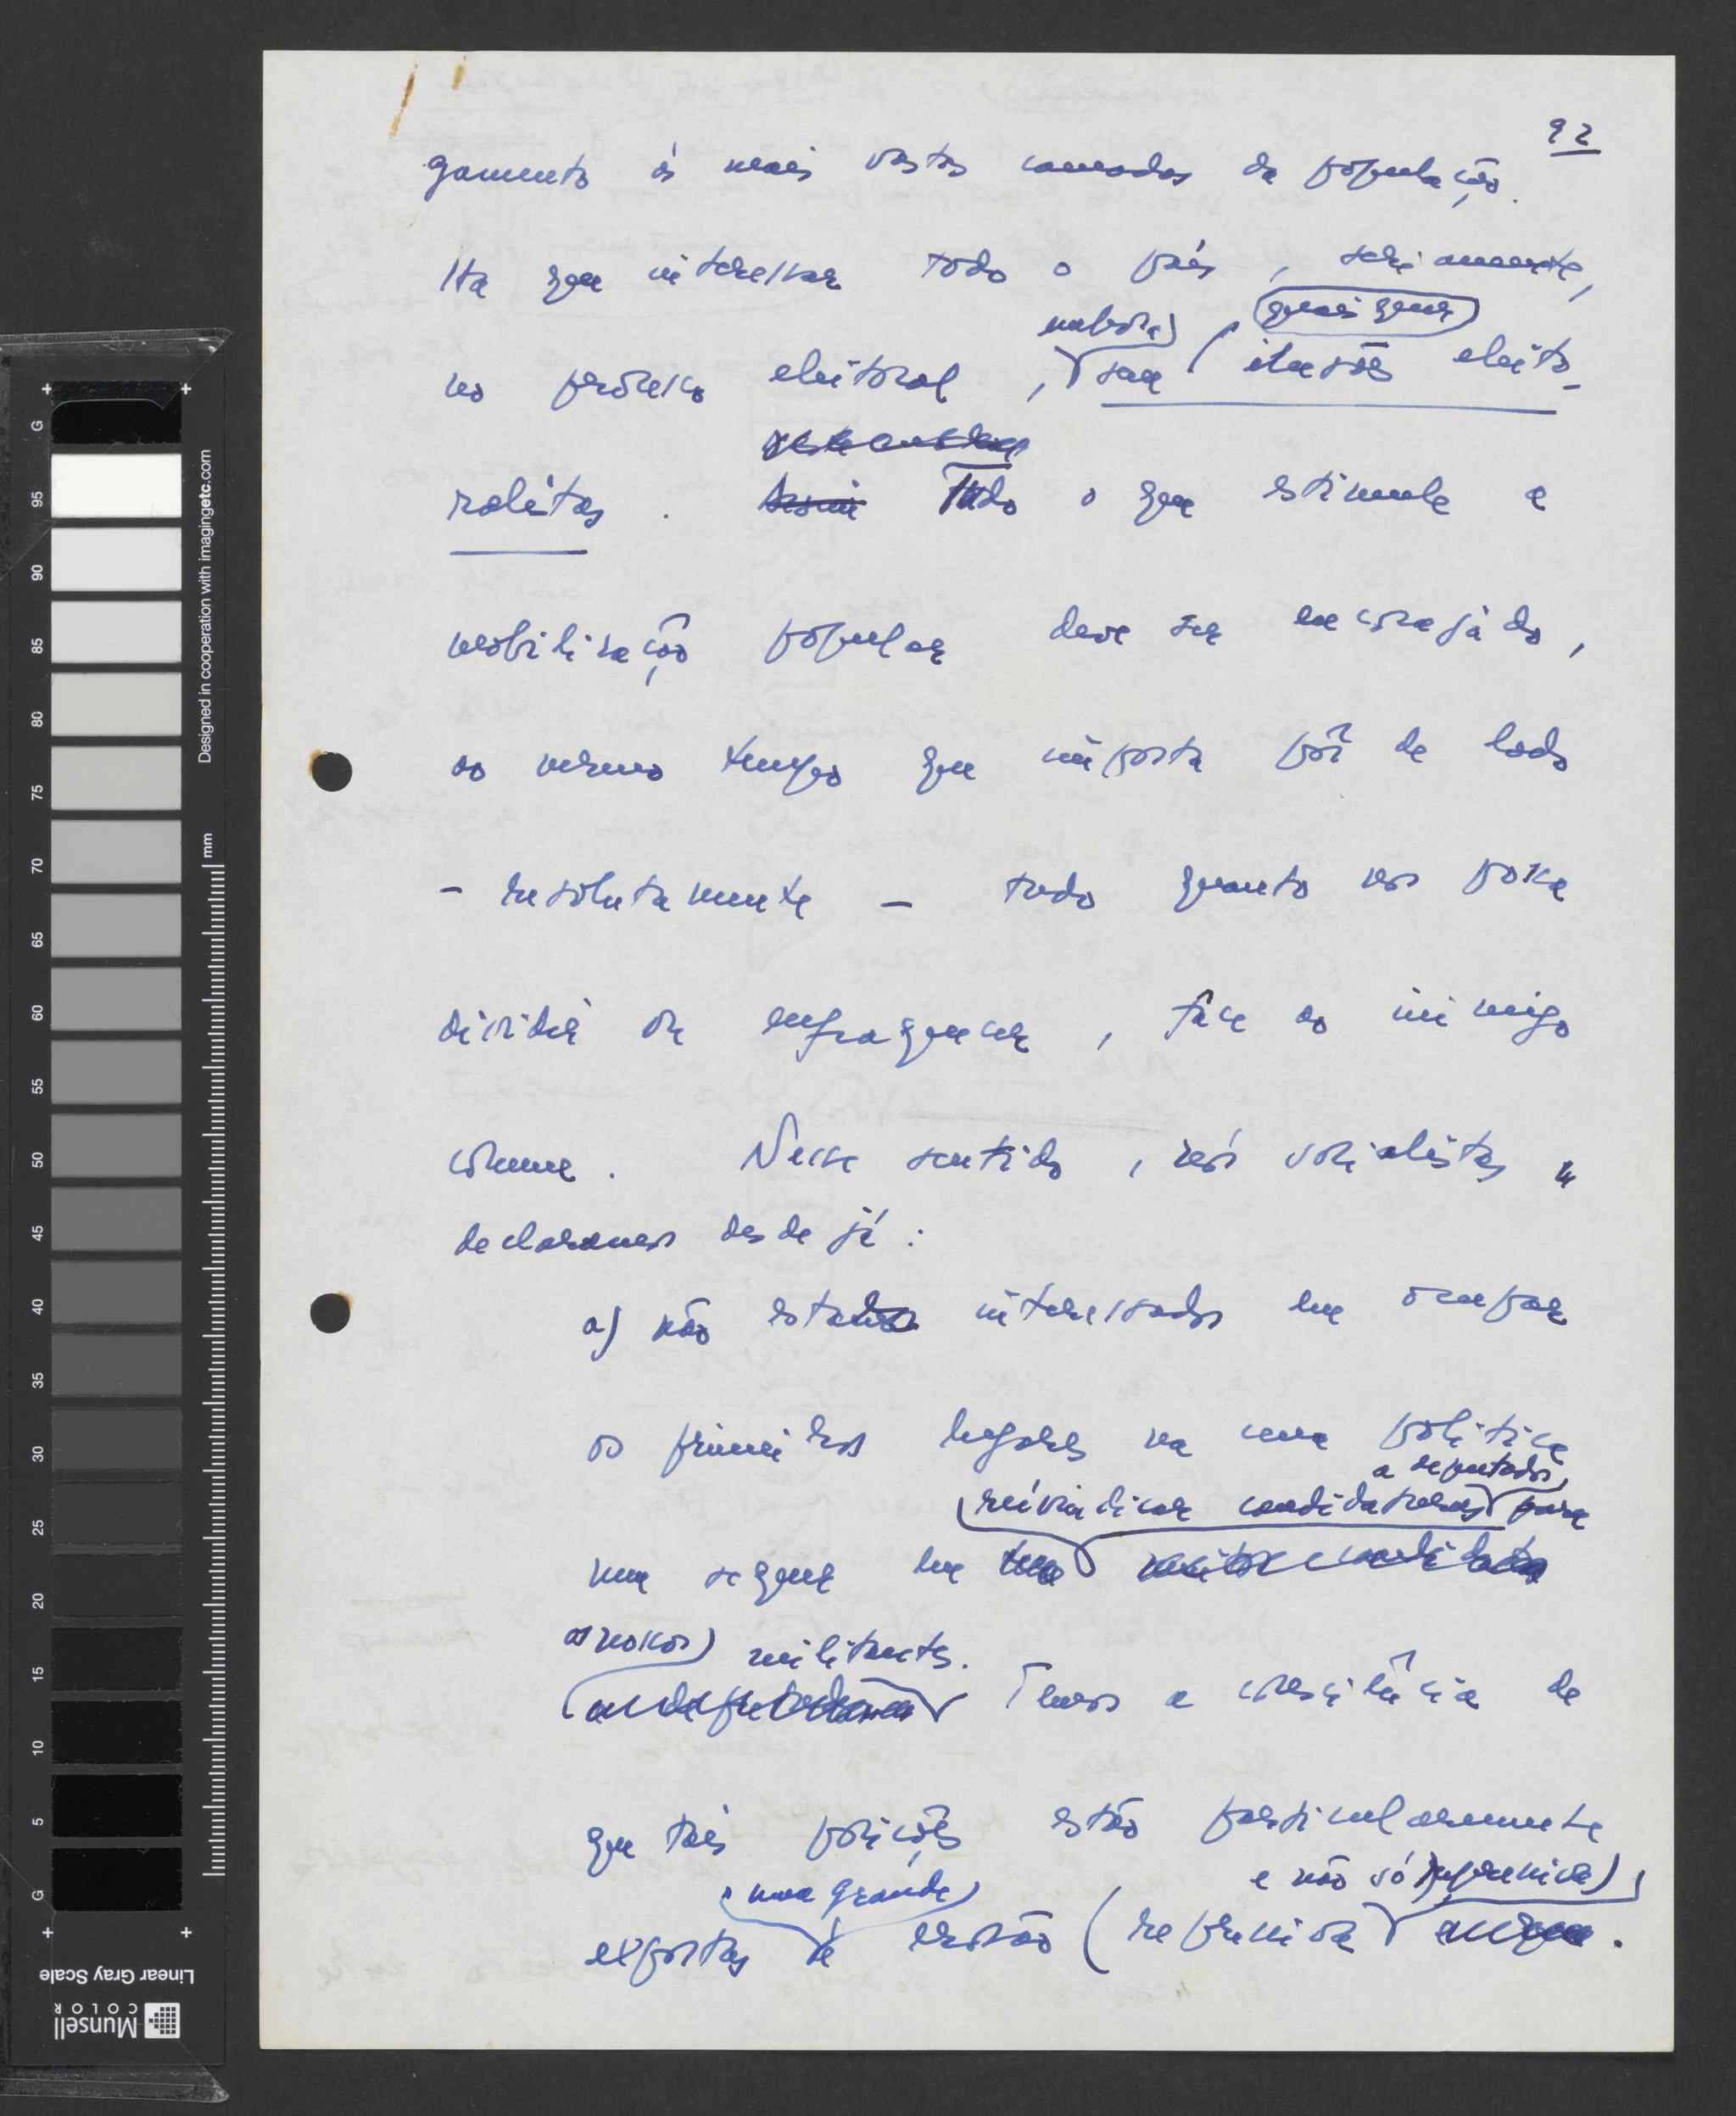 92
gamento às mais vastas camadas da população.
Há que interessar todo o país, seriamente,
no processo eleitoral, embora sem quaisquer ilusões eleito-
ralistas. Tudo o que estimule a
mobilização popular deve ser encorajado,
ao mesmo tempo que importa pôr de lado
- resolutamente - tudo quanto nos possa
dividir ou enfraquecer, face ao inimigo
comum. Nesse sentido, nós socialistas
declaramos desde já:
a) não estar interessados em ocupar
os primeiros lugares na cena política
nem sequer em reivindicar candidaturas a deputados, para
os nossos militantes. Temos a consciência de
que tais posições estão particularmente
expostas à erosão (repressiva e não só repressiva)
uma grande
Designed in cooperation with imagingetc.com
mm
G
95
90
85
80
75
70
65
60
55
50
45
40
35
30
25
20
15
10
5
G
Linear Gray Scale
Munsell
COLOR